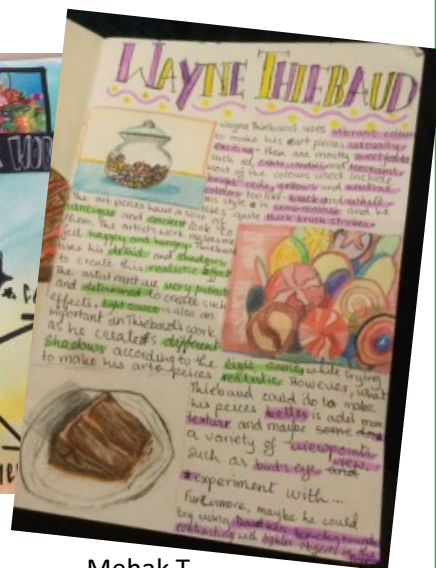 WAYNE THIEBAUD
Wayne Thiebaud uses vibrant colours
to make his art pieces visually
exciting - them are mostly sweet foods
such as cakes, candies and
Most of the colours used include
bright reds, yellows and neutral
colours too like black and white.
His style is semi-realistic and he
uses quite thick brush strokes.
The art pieces have a sort of
antique and ancient look to
them. The artists work makes me
feel happy and hungry. Thiebaud
uses his detail and shadows
to create this realistic effect
the artist must be very patient
and determined to create such
effects. Light source is also an
important in Thiebaud's work
as he creates different
shadows according to the
light source while trying
to make his art peices
realistic However, what
Thiebaud could do to make
his peices better is add more
texture and maybe some
a variety of viewpoints
such as bird's eye view.
experiment with...
Furthermore, maybe he could
try using darker backgrounds
contrasting with lighter objects in the
Mehak T